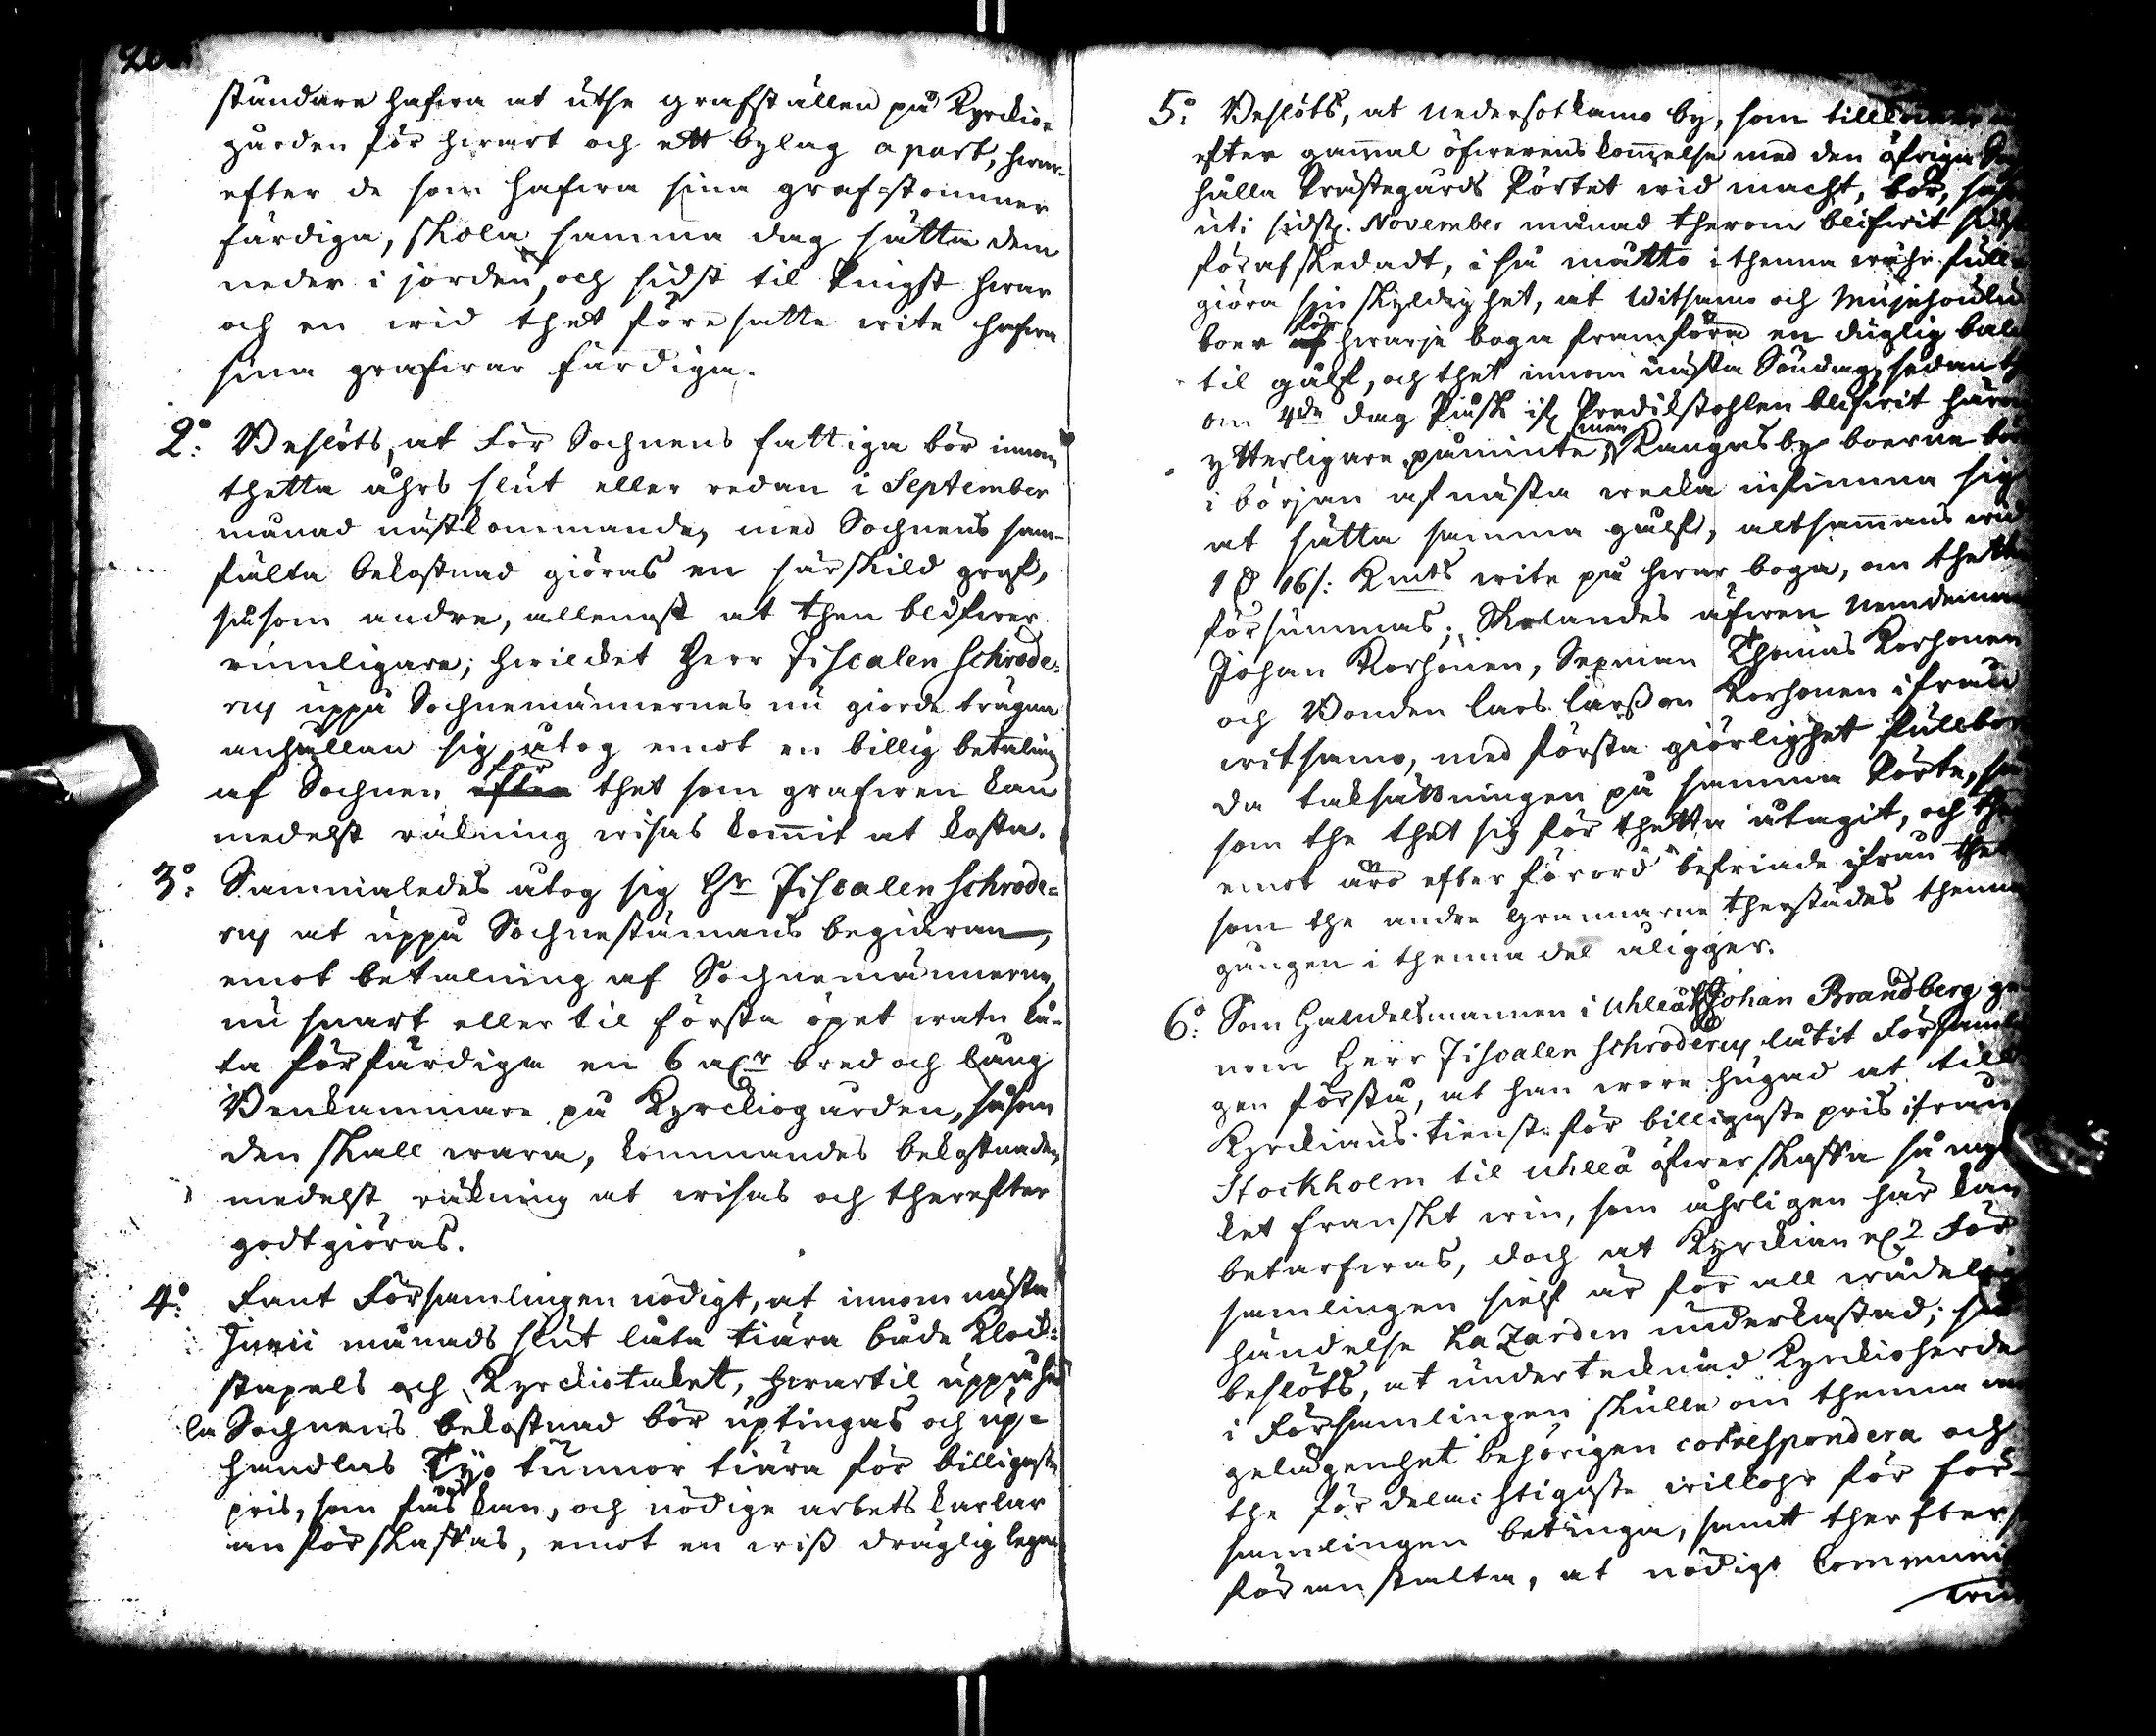 stundare hafwa at utse grafställen på Kyrckio-
gården för hwart och ett bylag apart, hwar-
efter de som hafwa sina grafstommer
färdiga, skola samma dag sätta dem
neder i jorden, och sidst til Pingst hwar
och en wid thet föresatte wite hafwa
sina grafwar färdiga.
2:o Beslöts, at för Sochnens fattiga bör innom
thetta åhrs slut eller redan i September
månad nästkommande, med Sochnens sam-
fälta bekostnad giöras en särskild graf,
såsom andre, allenast at then blifwer
rumligare; hwilcket Herr Fiscalen Schrode-
rus uppå Sochnemännernes nu giorde trägna
anhållan sig åtog emot en billig betalning
af Sochnen efter för thet som grafwen kan
medelst räkning wisas kommit at kosta.
3:o Sammaledes åtog sig Hr Fiscalen Schrode-
rus at uppå Sochnestämans begiäran,
emot betalning af Sochnemännerne,
nu snart eller til första öpet watn lå-
ta förfärdiga en 6 al:r bred och lång
Benkammare på Kyrckiogården, såsom
den skall wara, kommandes bekostnaden
medelst räkning at wisas och therefter
godtgiöras.
4:o Fant Församlingen nödigt, at innom nästa
Junii månads slut låta tiära både Klock-
stapels och Kyrckiotaket, hwartil uppå he-
la Sochnens bekostnad bör uptingas och up-
handlas Tyo tunnor tiära för billigaste
pris, som fås kan, och nödige arbetskarlar
anförskaffas, emot en wiß dräglig lega
5:o Beslöts, at Nedersotkamo by, som
efter gammal öfwerenskommelse med den öfriga
hålla Prästegårds Pörtet wid macht, bör,
uti sidst. November månad therom blifwit
förafskedadt, i så måtto i thenna wåhr full-
giöra sin skyldighet, at Witsamo och
boer af för hwarje boga framföra en duglig
til gålf, och thet innom nästa Söndag, sedan
om 4de dag Påsk if. Predikstohlen blifwit
ytterligare påminte, men Kangasby boerne
i början af nästa wecka infinna sig
at sätta samma gålf, altsammans wid
1 D 16/: Kmts wite på hwar boga, om thetta
försummas; Skolandes äfwen Nemdeman
Johan Korhonen, Sexman Thomas Korhonen
och Bonden Lars Larßon Korhonen ifrån
Witsamo, med första giörlighet
da taksättningen på samma Pörte,
som the thet sig för thetta åtagit, och
emot äro efter förord befriade ifrån
som the andre grannarne therstädes
gången i thenna del åligger.
6:o Som Handelsmannen i Uhleå Johan Brandberg ge-
nom Herr Fiscalen Schroderus låtit
gen förstå, at han wore hugad at
Kyrckians tienst för billigaste pris ifrån
Stockholm til Uhleå öfwerskaffa så
ket franskt win, som åhrligen här kan
betarfwas, doch at Kyrckian el:r För-
samlingen sielf är för all wådelig
händelse hazarden underkastad; så
beslöts, at undertecknad Kyrckioherde
i Församlingen skulle om thenna
gelägenhet behörigen correspondera och
the fördelachtigaste willohr för För-
samlingen betinga, samt therefter
föranstalta, at nödigt Communi-